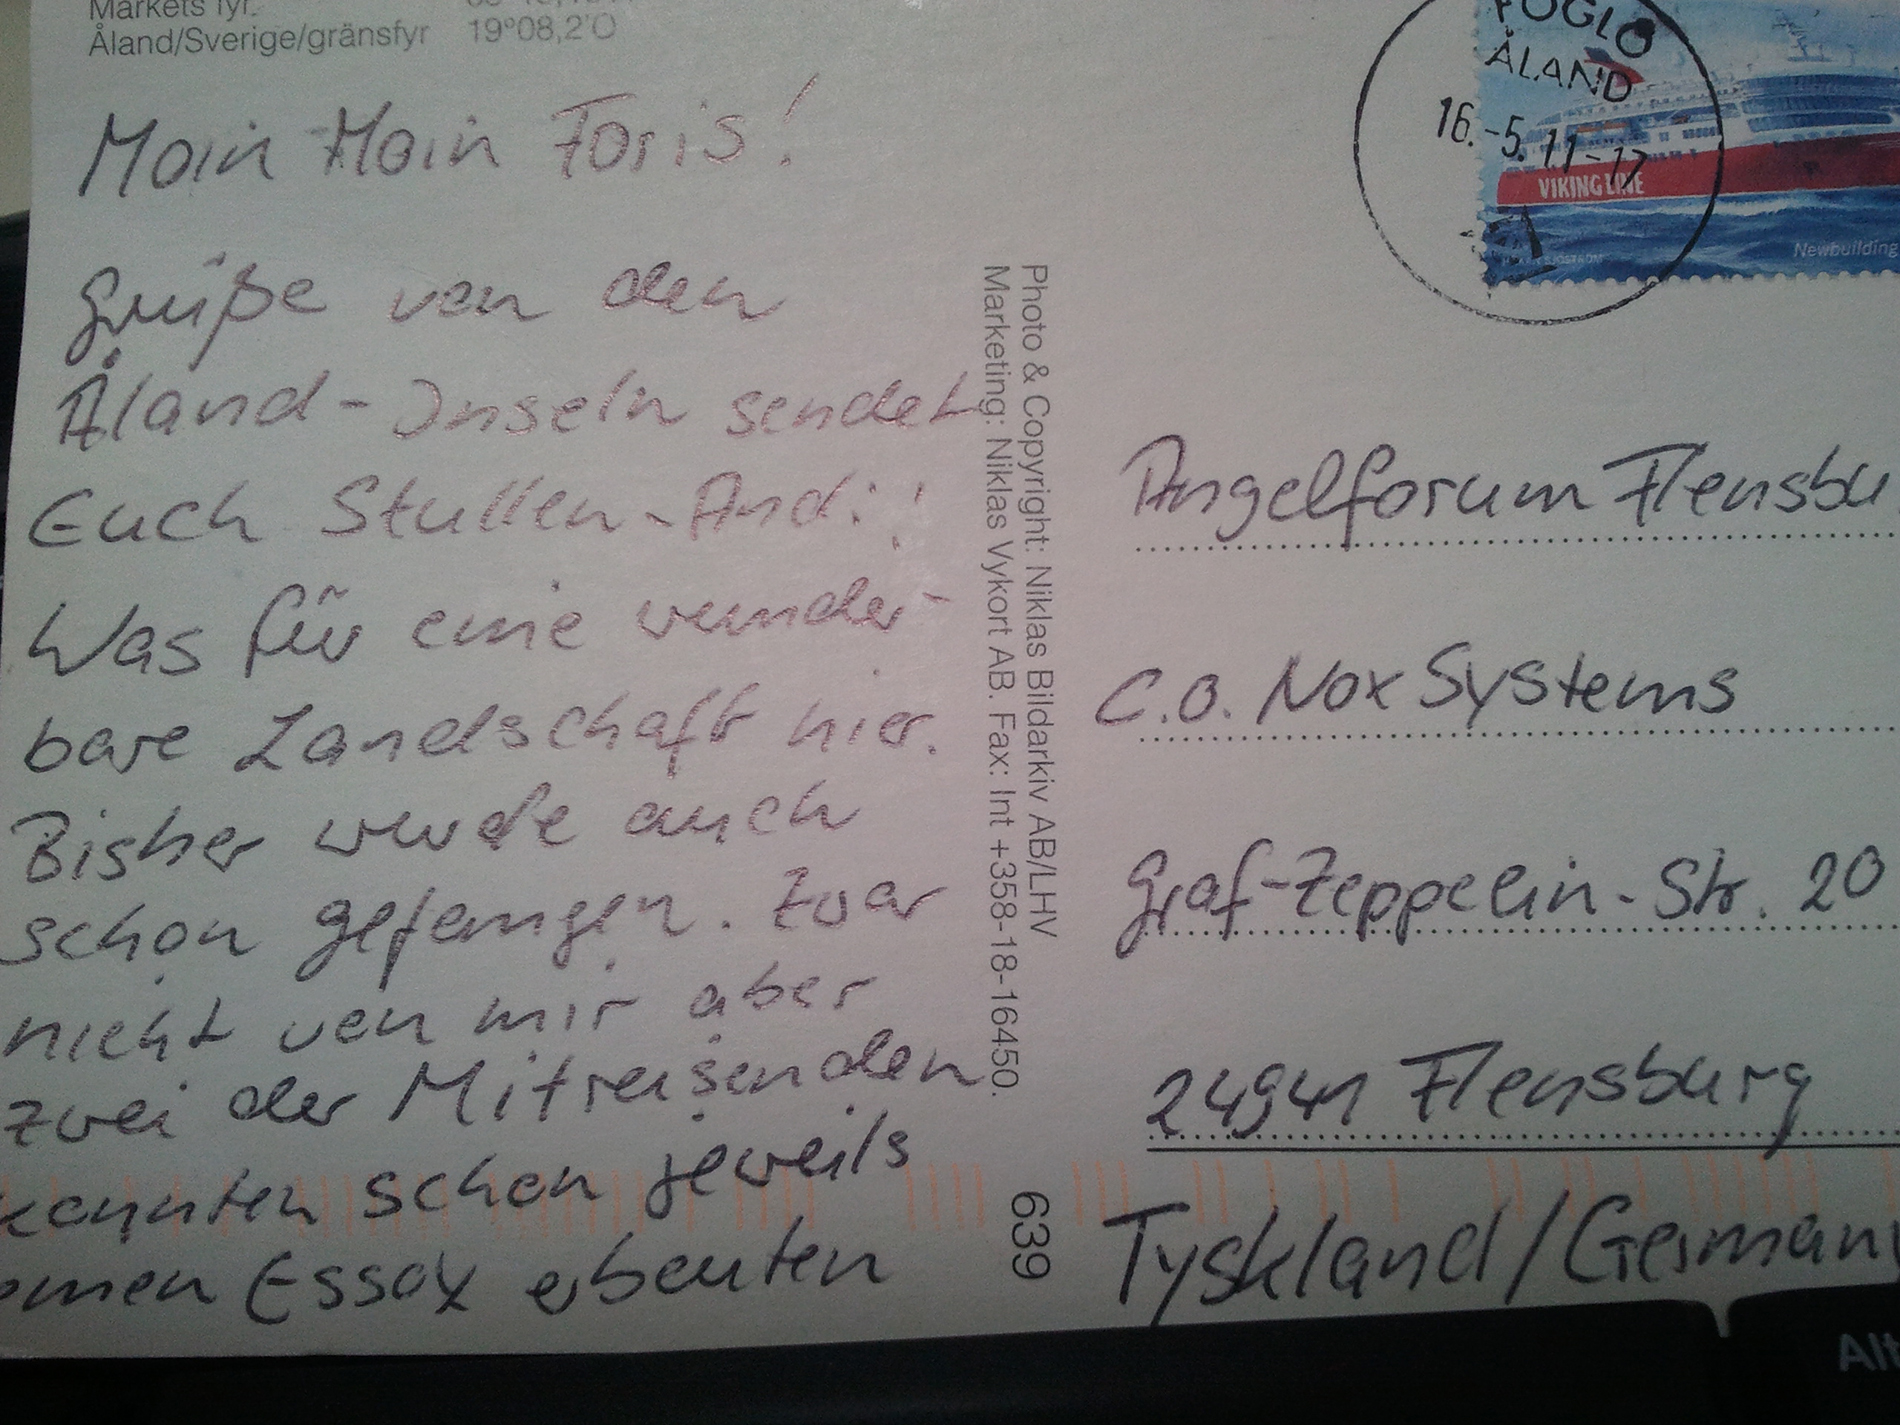 Markets fyr.
Åland/Sverige/gränsfyr 19°08,2'O
Moin Moin Foris!
Grüße von den
Åland-Inseln sendet
Euch Stullen-Andi!
Was für eine wunder-
bare Landschaft hier.
Bisher wurde auch
schon gefangen. Zwar
nicht von mir aber
zwei der Mitreisenden
konnten schon jeweils
einen Essox erbeuten
Photo & Copyright: Niklas Bildarkiv AB/LHV
Marketing: Niklas Vykort AB. Fax: Int +358-18-16450.
639
FÖGLÖ
ÅLAND
16.-5.11-17
VIKING LINE
Newbuilding
Angelforum Flensbu
C.O. Nox Systems
Graf-Zeppelin-Str. 20
24941 Flensburg
Tyskland/Germany
Alt